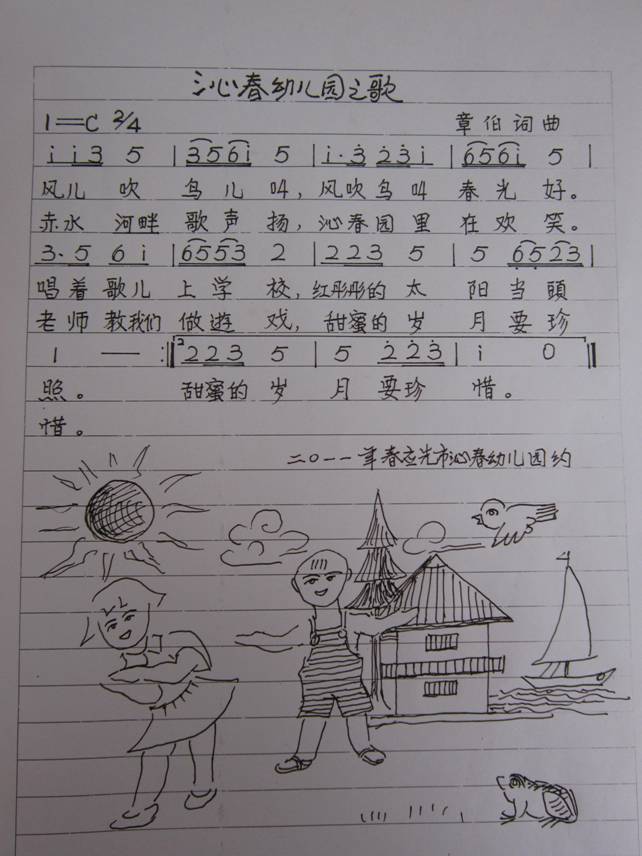 沁春幼儿园之歌
1=C 2/4 章伯词曲
i i 3 5 | 3 5 6 i 5 | i · 3 2 3 i | 6 5 6 i 5 |
风儿吹鸟儿叫,风吹鸟叫春光好。
赤水河畔歌声扬,沁春园里在欢笑。
3 · 5 6 i | 6 5 5 3 2 | 2 2 3 5 | 5 6 5 2 3 |
唱着歌儿上学校,红彤彤的太阳当頭
老师教我们做遊戏,甜蜜的岁月要珍
1 — :‖ 2 2 2 3 5 | 5 2 2 3 | i 0 ‖
照。 甜蜜的岁月要珍惜。
惜。
二〇一一年春 市沁春幼儿园约